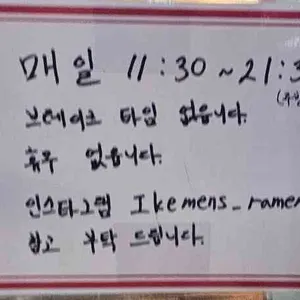 매일 11:30~21:3
브레이크 타임 없습니다.
휴무 없습니다.
인스타그램 Ikemens_ramen
참고 부탁드립니다.